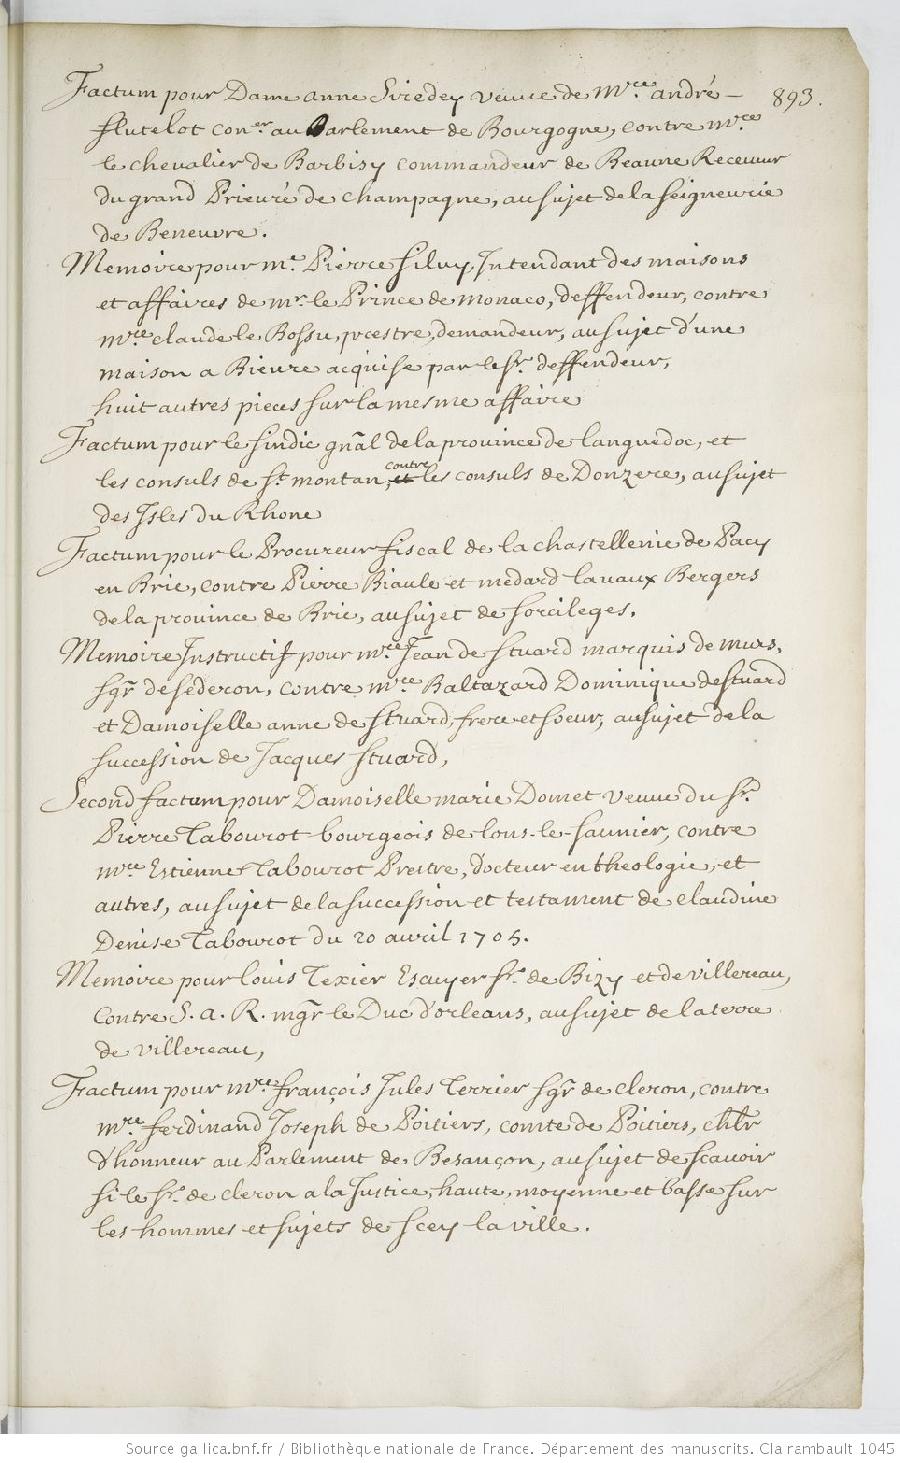 893.
Factum pour Dame anne Siredey veuve de Mre andré
flutelot coner au Parlement de Bourgogne, contre mre
le chevalier de Barbisy commandeur de Beaune Receveur
du grand Prieuré de champagne, au sujet de la seigneurie
de Beneuvre.
Memoire pour me Pierre Silvy, Intendant des maisons
et affaires de mr le Prince de monaco, deffendeur, contre
mre claude le Bossu, prestre, demandeur, au sujet d'une
maison a Bievre acquise par le sr deffendeur,
huit autres pieces sur la mesme affaire
Factum pour le sindic gñal de la province de languedoc, et
les consuls de st montan, et contre les consuls de Donzere, au sujet
des Isles du Rhone
Factum pour le Procureur fiscal de la chastellenie de Pacy
en Brie, contre Pierre Biaule et medard lavaux Bergers
de la province de Brie, au sujet de sorcileges.
Memoire Instructif pour mre Jean de Stuard marquis de murs,
sgr de séderon, contre mre Baltazard Dominique de stuard
et Damoiselle anne de stuard, frere et soeur, au sujet de la
succession de Jacques stuard,
Second factum pour Damoiselle marie Domet veuve du sr
Pierre Tabourot bourgeois de lons-le-saunier, contre
mre Estienne Tabourot Prestre, docteur en theologie, et
autres, au sujet de la succession et testament de claudine
Denise Tabourot du 20 avril 1705.
Memoire pour louis Texier Escuyer sr de Bizy et de villereau,
contre S. a. R. mgr le Duc d'orleans, au sujet de la terre
de villereau,
Factum pour mre françois Jules Terrier sgr de cleron, contre
mre ferdinand Joseph de Poitiers, comte de Poitiers, chlr
d'honneur au Parlement de Besançon, au sujet de scavoir
si le sr de cleron a la Justice, haute, moyenne et basse sur
les hommes et sujets de scey la ville.
Source gallica.bnf.fr / Bibliothèque nationale de France. Département des manuscrits. Clairambault 1045